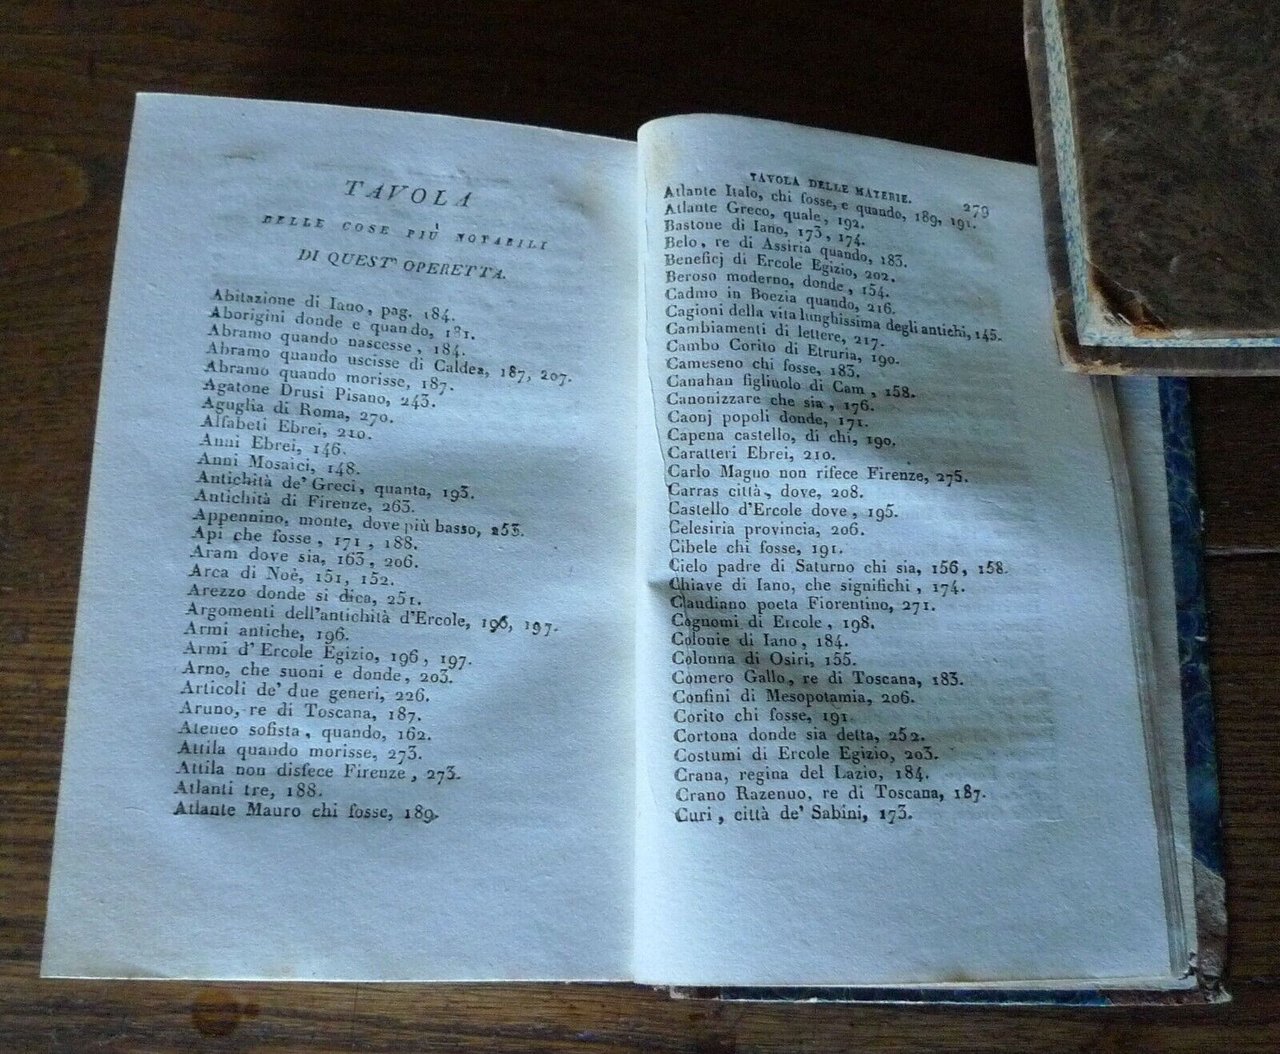 TAVOLA
DELLE COSE PIÙ NOTABILI
DI QUEST' OPERETTA.
Abitazione di Iano, pag. 184.
Aborigini donde e quando, 181.
Abramo quando nascesse, 184.
Abramo quando uscisse di Caldea, 187, 207.
Abramo quando morisse, 187.
Agatone Drusi Pisano, 243.
Aguglia di Roma, 270.
Alfabeti Ebrei, 210.
Anni Ebrei, 146.
Anni Mosaici, 148.
Antichità de' Greci, quanta, 193.
Antichità di Firenze, 263.
Appennino, monte, dove più basso, 253.
Api che fosse, 171, 188.
Aram dove sia, 163, 206.
Arca di Noè, 151, 152.
Arezzo donde si dica, 251.
Argomenti dell'antichità d'Ercole, 196, 197.
Armi antiche, 196.
Armi d' Ercole Egizio, 196, 197.
Arno, che suoni e donde, 203.
Articoli de' due generi, 226.
Aruno, re di Toscana, 187.
Ateneo sofista, quando, 162.
Attila quando morisse, 273.
Attila non disfece Firenze, 273.
Atlanti tre, 188.
Atlante Mauro chi fosse, 189.
TAVOLA DELLE MATERIE. 279
Atlante Italo, chi fosse, e quando, 189, 191.
Atlante Greco, quale, 192.
Bastone di Iano, 173, 174.
Belo, re di Assiria quando, 183.
Beneficj di Ercole Egizio, 202.
Beroso moderno, donde, 154.
Cadmo in Boezia quando, 216.
Cagioni della vita lunghissima degli antichi, 145.
Cambiamenti di lettere, 217.
Cambo Corito di Etruria, 190.
Cameseno chi fosse, 183.
Canahan figliuolo di Cam, 158.
Canonizzare che sia, 176.
Caonj popoli donde, 171.
Capena castello, di chi, 190.
Caratteri Ebrei, 210.
Carlo Magno non rifece Firenze, 275.
Carras città, dove, 208.
Castello d'Ercole dove, 195.
Celesiria provincia, 206.
Cibele chi fosse, 191.
Cielo padre di Saturno chi sia, 156, 158.
Chiave di Iano, che significhi, 174.
Claudiano poeta Fiorentino, 271.
Cognomi di Ercole, 198.
Colonie di Iano, 184.
Colonna di Osiri, 155.
Comero Gallo, re di Toscana, 183.
Confini di Mesopotamia, 206.
Corito chi fosse, 191.
Cortona donde sia detta, 252.
Costumi di Ercole Egizio, 203.
Crana, regina del Lazio, 184.
Crano Razenuo, re di Toscana, 187.
Curi, città de' Sabini, 173.